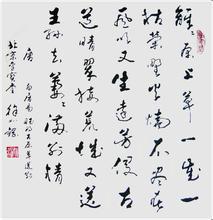 離々原上草一歲一
枯榮野火燒不盡春
風吹又生遠芳侵古
道晴翠接荒城又送
王孫去萋々滿別情
唐 白居易
北京